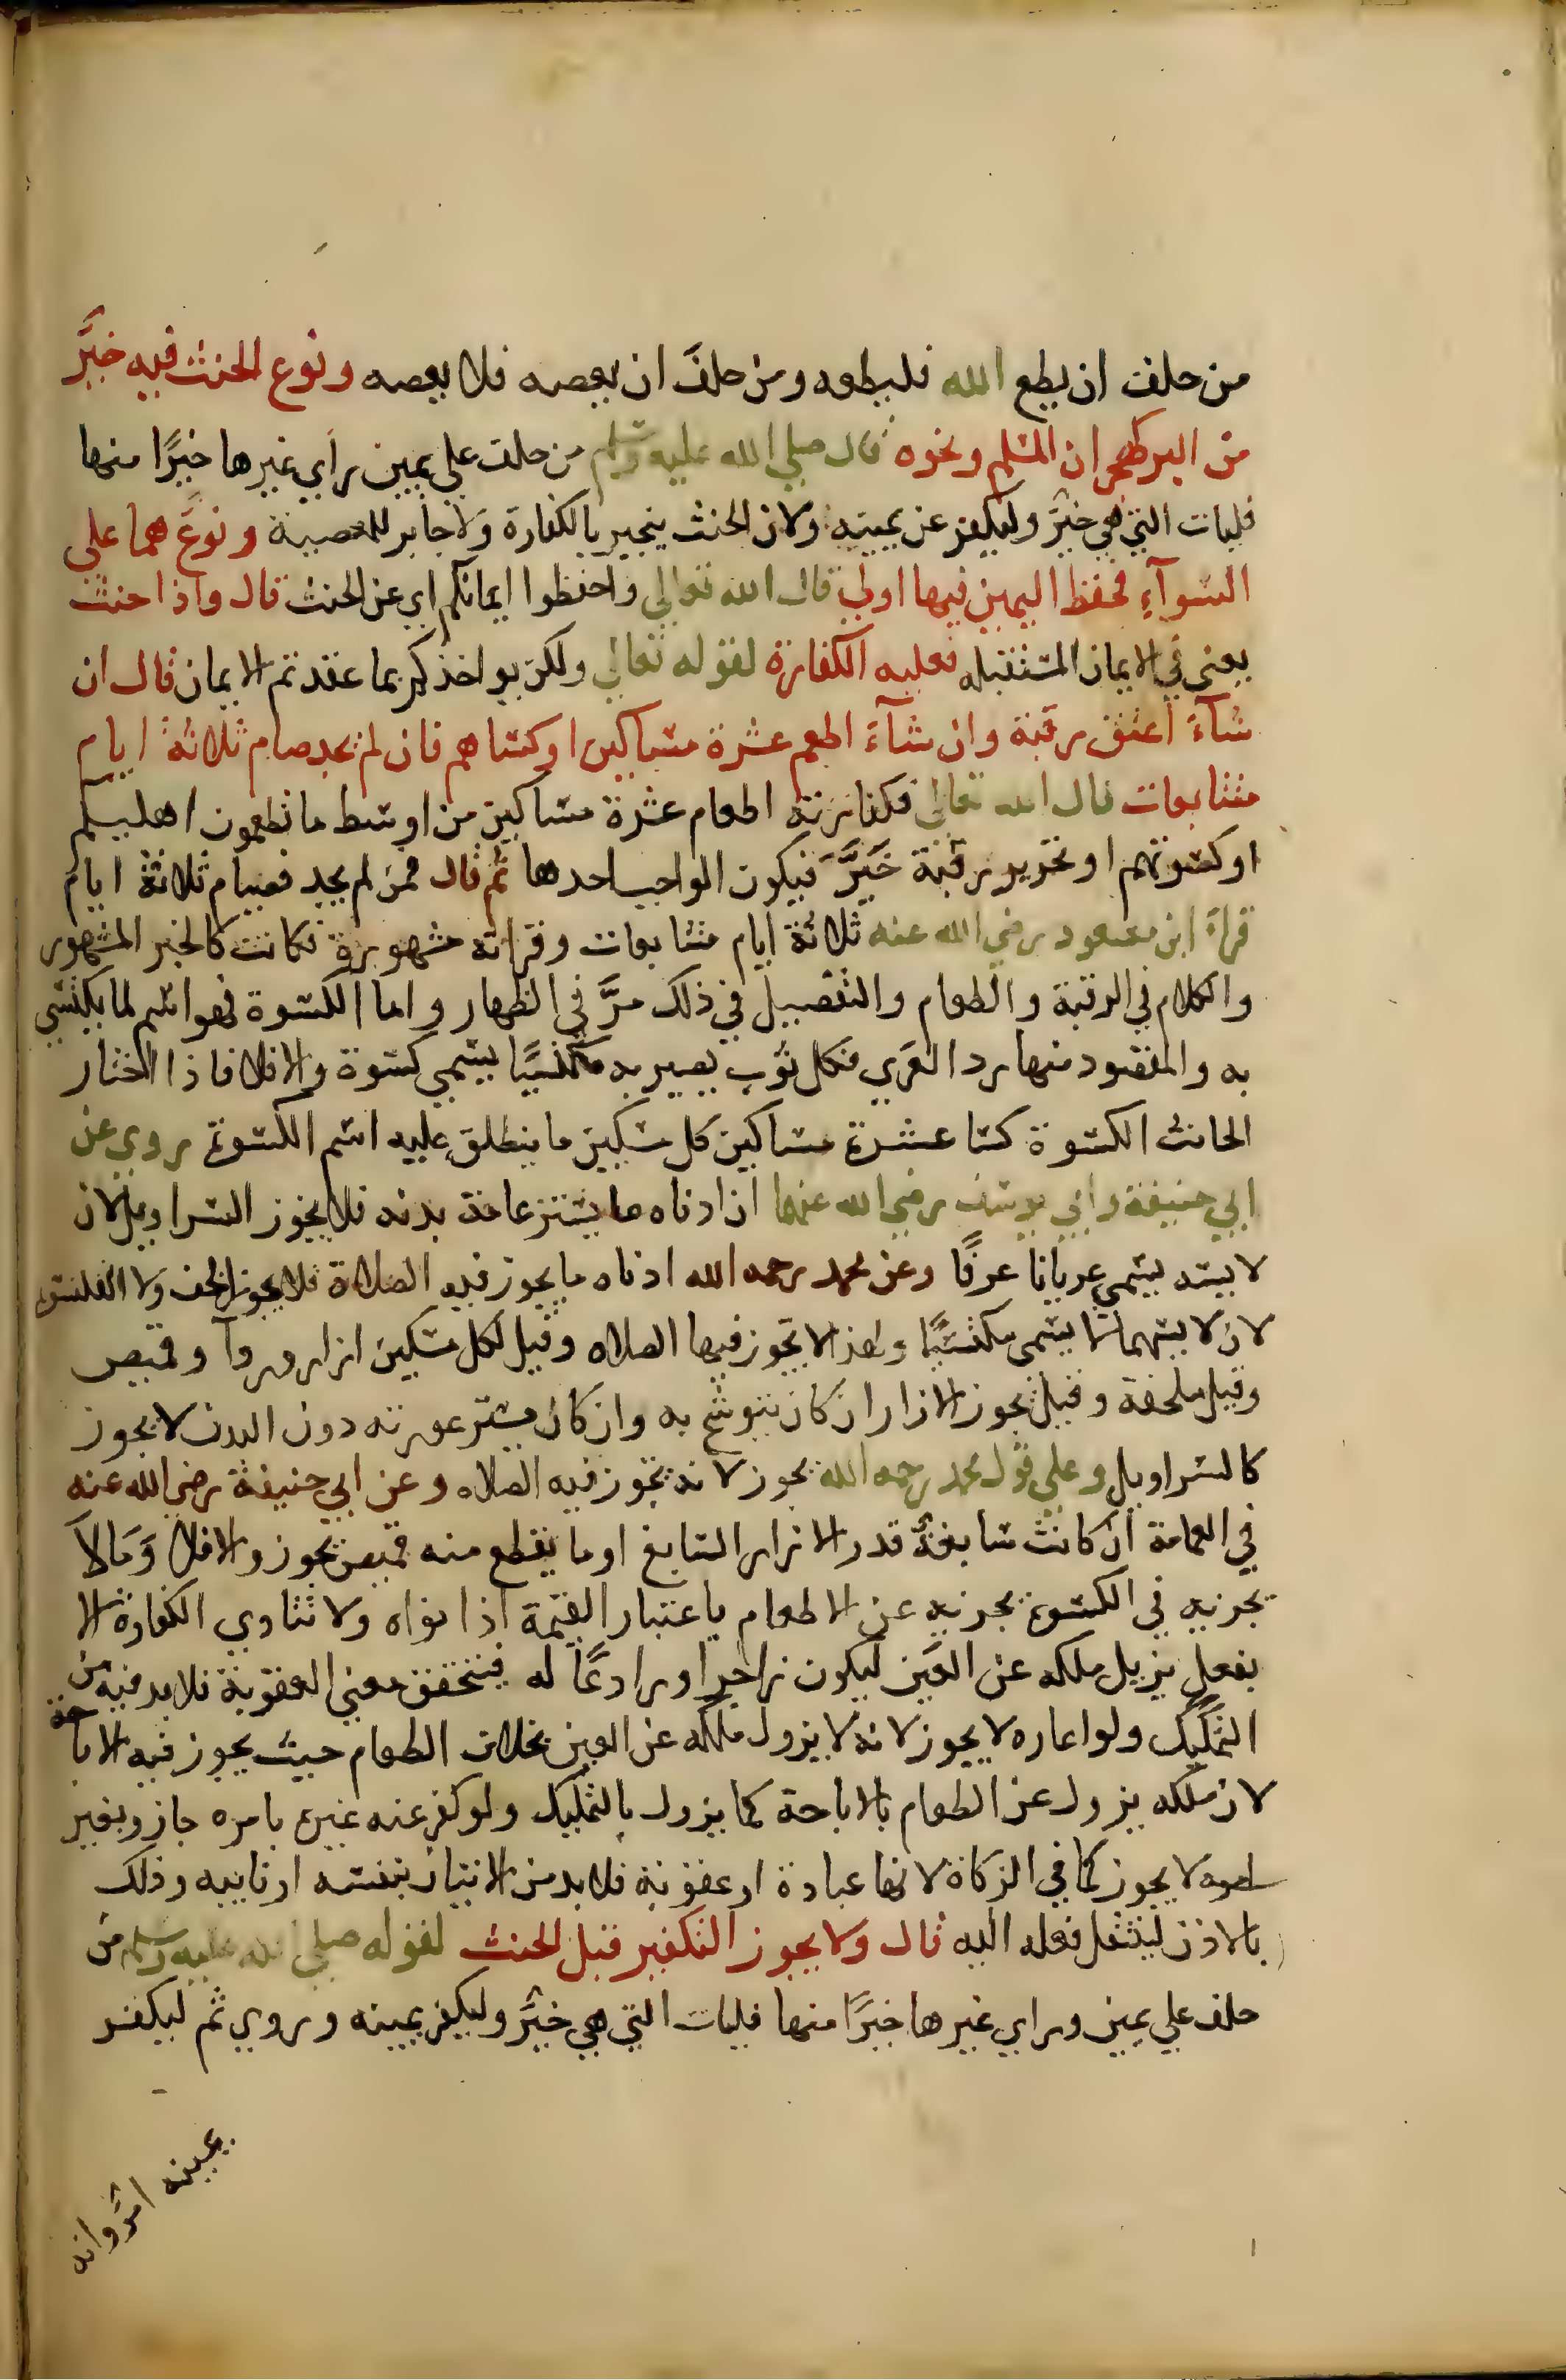 من حلف ان يطع الله فليطعه ومن حلف ان يعصه فلا يعصه ونوع الحنث فيه خير
من البر كهجران المسلم ونحوه قال صلى الله عليه وسلم من حلف على يمين راي غيرها خيرًا منها
فليات التي هي خير وليكفر عن يمينه ولان الحنث ينجبر بالكفارة ولا جابر للمعصية ونوع هما على
السوآء فحفظ اليمين فيها اولي قال الله تعالي واحفظوا ايمانكم اي عن الحنث قال واذا حنث
يعني في الايمان المستقبله فعليه الكفارة لقوله تعالي ولكن يواخذكم بما عقدتم الايمان قال ان
شآء اعتق رقبة وان شآء اطعم عشرة مساكين او كساهم فان لم يجد صام ثلاثة ايام
متتابعات قال الله تعالي فكفارته اطعام عشرة مساكين من اوسط ما تطعمون اهليكم
او كسوتهم او تحرير رقبة خير فيكون الواجب احدها ثم قال فمن لم يجد فصيام ثلاثة ايام
قراء ابن مسعود رضي الله عنه ثلاثة ايام متتابعات وقراته مشهورة فكانت كالخبر المشهور
والكلام في الرقبة والطعام والتفصيل في ذلك مرَّ في الظهار واما الكسوة فهو اسم لما يكتسي
به والمقصود منها رد العري فكل ثوب يصير به مكتسيًا يسمي كسوة والا فلا فاذا اختار
الحانث الكسوة كسا عشرة مساكين كل مسكين ما ينطلق عليه اسم الكسوة روي عن
ابي حنيفة وابي يوسف رضي الله عنهما ان ادناه ما يستر عامة بدنه فلا يجوز السراويل لان
لابسه يسمي عريانا عرفًا وعن محمد رحمه الله ادناه ما يجوز فيه الصلاة فلا يجوز الخف ولا القلنسوه
لان لابسهما لا يسمى مكتسيًا ولهذا لا تجوز فيها الصلاه وقيل لكل مسكين ازار وردآ وقميص
وقيل ملحفة وقيل يجوز الازار ان كان يتوشح به وان كان يستر عورته دون البدن لا يجوز
كالسراويل وعلي قول محمد رحمه الله يجوز لانه تجوز فيه الصلاه وعن ابي حنيفة رضي الله عنه
في العمامة ان كانت سابغة قدر الازار السابغ او ما يقطع منه قميص يجوز والا فلا وما لا
يجزيه في الكسوة يجزيه عن الاطعام باعتبار القيمة اذا نواه ولا تتادي الكفارة الا
بفعل يزيل ملكه عن العين ليكون زاجرا ورادعًا له فيتحقق معني العقوبة فلا بد فيه من
التمليك ولو اعاره لا يجوز لانه لا يزول ملكه عن العين بخلاف الطعام حيث يجوز فيه الاباحة
لان ملكه يزول عن الطعام بالاباحة كما يزول بالتمليك ولو كفر عنه غيره بامره جاز وبغير
امره لا يجوز كما في الزكاة لانها عبادة او عقوبة فلا بد من الاتيان بنفسه او نايبه وذلك
بالاذن لينتقل فعله اليه قال ولا يجوز التكفير قبل الحنث لقوله صلى الله عليه وسلم من
حلف علي يمين وراي غيرها خيرًا منها فليات التي هي خير وليكفر يمينه وروي ثم ليكفر
يمينه